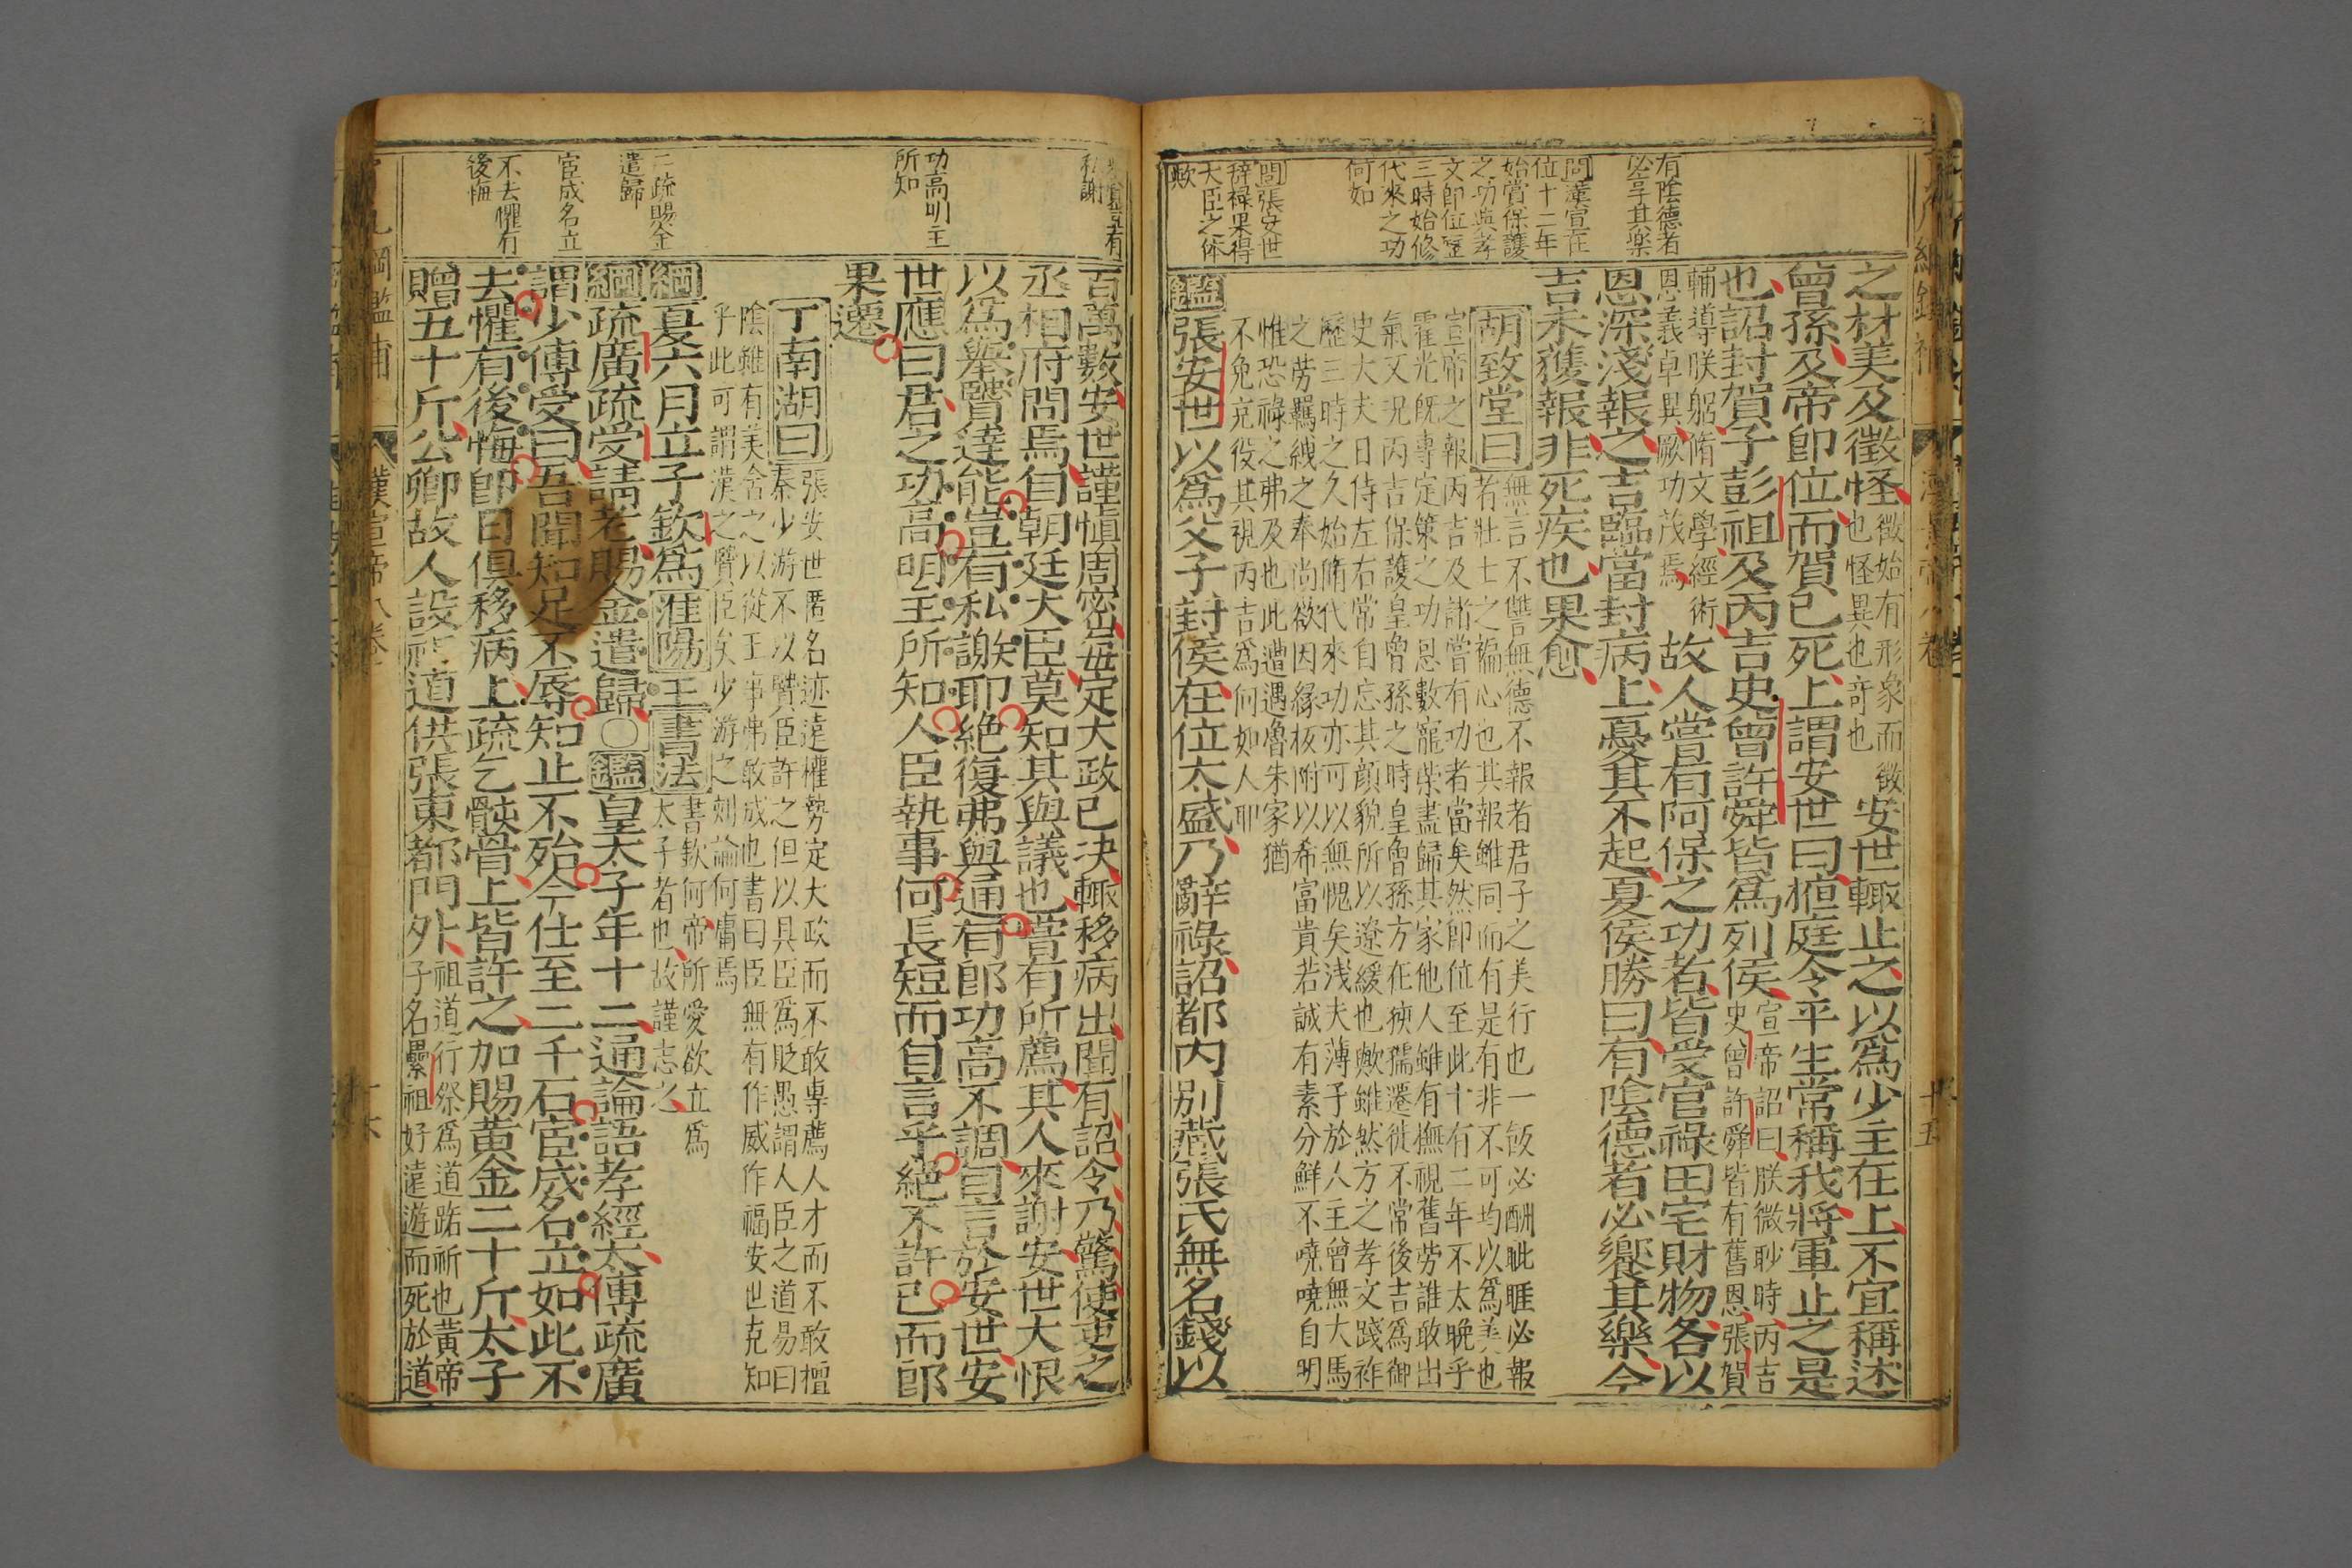 有陰德者
必享其樂
問漢宣在
位十二年
始賞保護
之功與孝
文即位歷
三時始修
代來之功
何如
問張安世
辭祿果得
大臣之体
歟
之材美及徵怪
徵始有形象而徵
也怪異也奇也
安世輒止之以爲少主在上不宜稱述
曾孫及帝即位而賀已死上謂安世曰掖庭令平生常稱我將軍止之是
也詔封賀子彭祖及丙吉史曾許舜皆爲列侯
宣帝詔曰朕微眇時丙吉
史曾許舜皆有舊恩張賀
輔導朕躬脩文學經術
恩義卓異厥功茂焉
故人嘗有阿保之功者皆受官祿田宅財物各以
恩深淺報之吉臨當封病上憂其不起夏侯勝曰有陰德者必饗其樂今
吉未獲報非死疾也果愈
胡致堂曰
無言不讐無德不報者君子之美行也一飯必酬眦睚必報
者壯士之褊心也其報雖同而有是有非不可均以爲美也
宣帝之報丙吉及諸嘗有功者當矣然即位至此十有二年不太晚乎
霍光旣專定策之功恩數寵榮盡歸其家他人雖有撫視舊劳誰敢出
氣又况丙吉保護皇曾孫之時皇曾孫方在襁褓遷徙不常後吉爲御
史大夫日侍左右常自忘其顔貌所以遼緩也歟雖然方之孝文踐祚
歷三時之久始脩代來功亦可以無愧矣浅夫薄子於人主曾無大馬
之劳羈絏之奉尚欲因緣扳附以希富貴若誠有素分鮮不嘵嘵自明
惟恐祿之弗及也此遭遇魯朱家猶
不免克役其視丙吉爲何如人耶
鑑張安世以爲父子封侯在位太盛乃辭祿詔都內別藏張氏無名錢以
私謝
功高明主
所知
二疏賜金
遣歸
宦成名立
不去懼有
後悔
百萬數安世謹愼周密每定大政已决輒移病出聞有詔令乃驚使吏之
丞相府問焉自朝廷大臣莫知其與議也嘗有所薦其人來謝安世大恨
以爲舉賢達能豈有私謝耶絕復弗與通有郎功高不調自言於安世安
世應曰君之功高明主所知人臣執事何長短而自言乎絕不許已而郎
果遷
丁南湖曰
張安世匿名迹遠權勢定大政而不敢專薦人才而不敢擅
秦少游不以賢臣許之但以具臣爲貶愚謂人臣之道易曰
陰雖有美含之以從王事弗敢成也書曰臣無有作威作福安世克知
乎此可謂漢之賢臣矣少游之刻論何庸焉
綱夏六月立子欽爲淮陽王
書法
書欽何帝所愛欲立爲
太子者也故謹志之
綱疏廣疏受請老賜金遣歸〇鑑皇太子年十二通論語孝經太傅疏廣
謂少傅受曰吾聞知足不辱知止不殆今仕至二千石宦成名立如此不
去懼有後悔即日俱移病上疏乞骸骨上皆許之加賜黄金二十斤太子
贈五十斤公卿故人設祖道供張東都門外
祖道行祭爲道路祈也黄帝
子名纍祖好遠遊而死於道
漢宣帝八卷